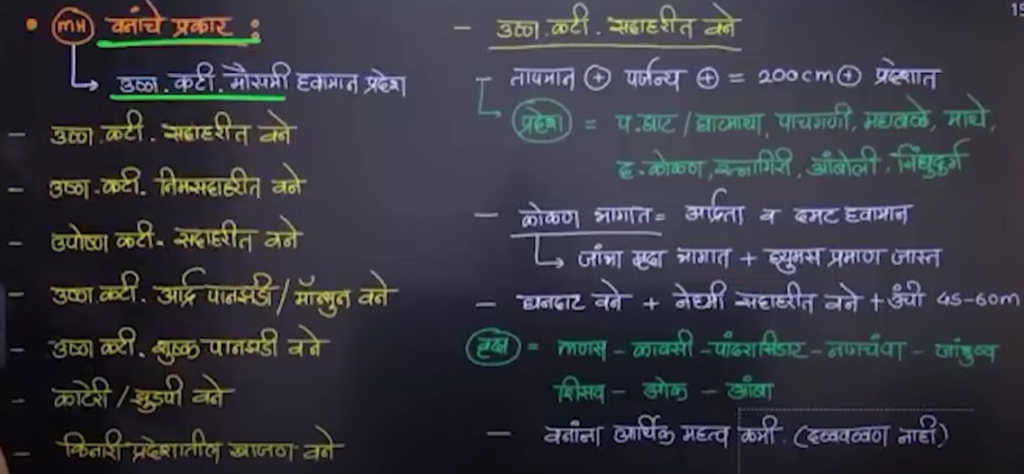 • (MH) वनांचे प्रकार :
उष्ण.कटी. मौसमी हवामान प्रदेश
- उष्ण.कटी. सदाहरीत वने
- उष्ण.कटी. निमसदाहरीत वने
- उपोष्ण कटी. सदाहरीत वने
- उष्ण कटी. आर्द्र पानझडी/मॉन्सुन वने
- उष्ण कटी. शुष्क पानझडी वने
- काटेरी/झुडपी वने
- किनारी प्रदेशातील खाजण वने
15
- उष्ण.कटी. सदाहरीत वने
तापमान ⊕ पर्जन्य ⊕ = 200cm ⊕ प्रदेशात
(प्रदेश) = प.घाट/घाटमाथा, पाचगणी, महाबळे, माथे,
द.कोकण, रत्नागिरी, आंबोली, सिंधुदुर्ग
- कोकण भागात = आर्द्रता व दमट हवामान
जांभा मृदा भागात + ह्युमस प्रमाण जास्त
- घनदाट वने + नेहमी सदाहरीत वने + उंची 45-60m
(वृक्ष) = फणस - कावसी - पांढरासिडार - नागचंपा - जांभुळ
शिसव - ओक - आंबा
- वनांना आर्थिक महत्व कमी. (दळवळण नाही)